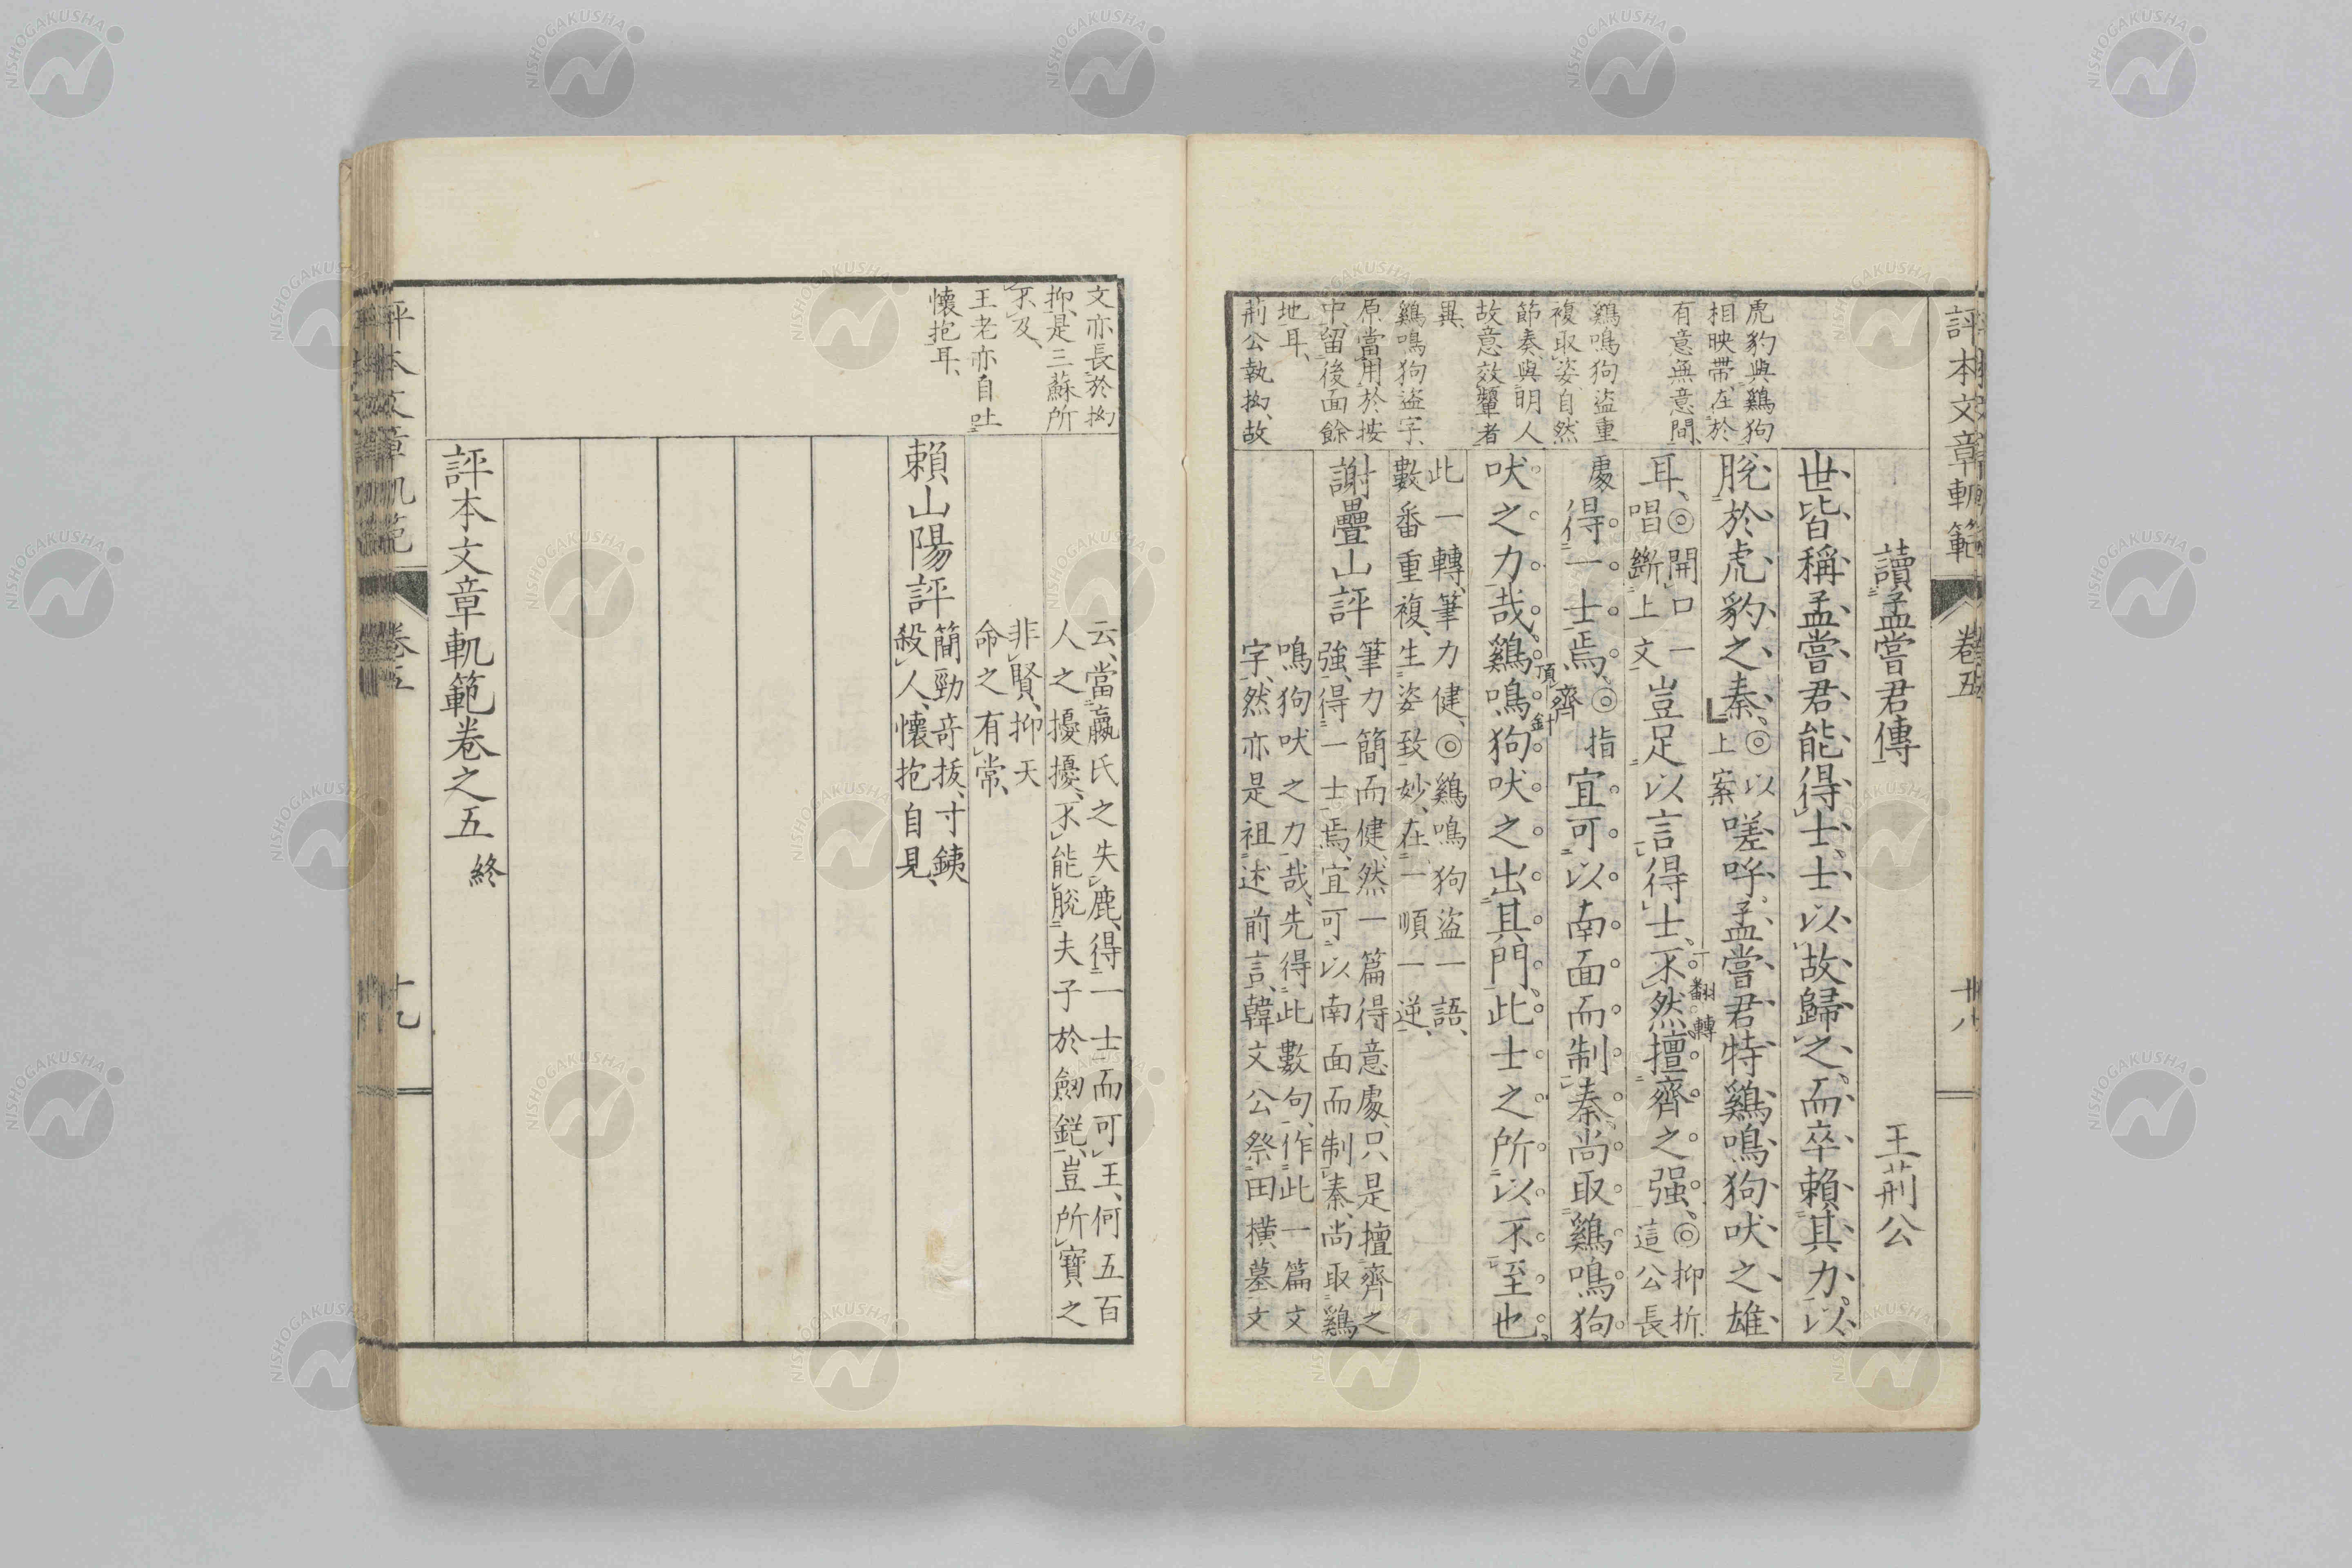 評本文章軌範
卷五
十八
讀孟嘗君傳
王荊公
世皆稱孟嘗君能得士、士以故歸之、而卒賴其力、以
脫於虎豹之秦、◎以
上案
嗟呼、孟嘗君特鷄鳴狗吠之雄
耳、◎開口一
唱斷上文
豈足以言得士、不然擅齊之强、◎抑折
這公長
一翻轉
處
得一士焉、◎指
齊
宜可以南面而制秦、尚取鷄鳴狗
吠之力哉、鷄鳴狗吠之出其門、此士之所以不至也、
頂針
此一轉、筆力健、◎鷄鳴狗盜一語、
數番重複、生姿致妙、在一順一逆、
謝疊山評
筆力簡而健、然一篇得意處、只是擅齊之
強、得一士焉、宜可以南面而制秦、尚取鷄
鳴狗吠之力哉、先得此數句、作此一篇文
字、然亦是祖述前言、韓文公祭田橫墓文
虎豹與鷄狗
相映帶、在於
有意無意間、
鷄鳴狗盜重
複取姿、自然
節奏、與明人
故意效顰者
異、
鷄鳴狗盜字、
原當用於按
中、留後面餘
地耳、
荊公執拗、故
文亦長於拗
抑、是三蘇所
不及、
王老亦自吐
懷抱耳、
云、當嬴氏之失鹿、得一士而可王、何五百
人之擾擾、不能脫夫子於劒鋩、豈所寶之
非賢、抑天
命之有常、
賴山陽評
簡勁奇拔、寸鐵
殺人、懷抱自見、
評本文章軌範卷之五
終
評本文章軌範
卷五
十九
NISHOGAKUSHA